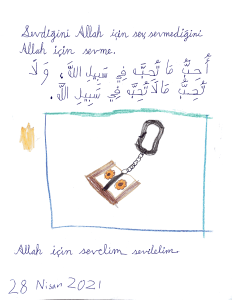 Sevdiğini Allah için sev sevmediğini
Allah için sevme.
أُحِبُّ مَا تُحِبُّ فِي سَبِيلِ اللَّهِ، وَلَا
تُحِبَّ مَا لَا تُحِبُّ فِي سَبِيلِ اللَّهِ.
Allah için sevelim sevilelim.
28 Nisan 2021